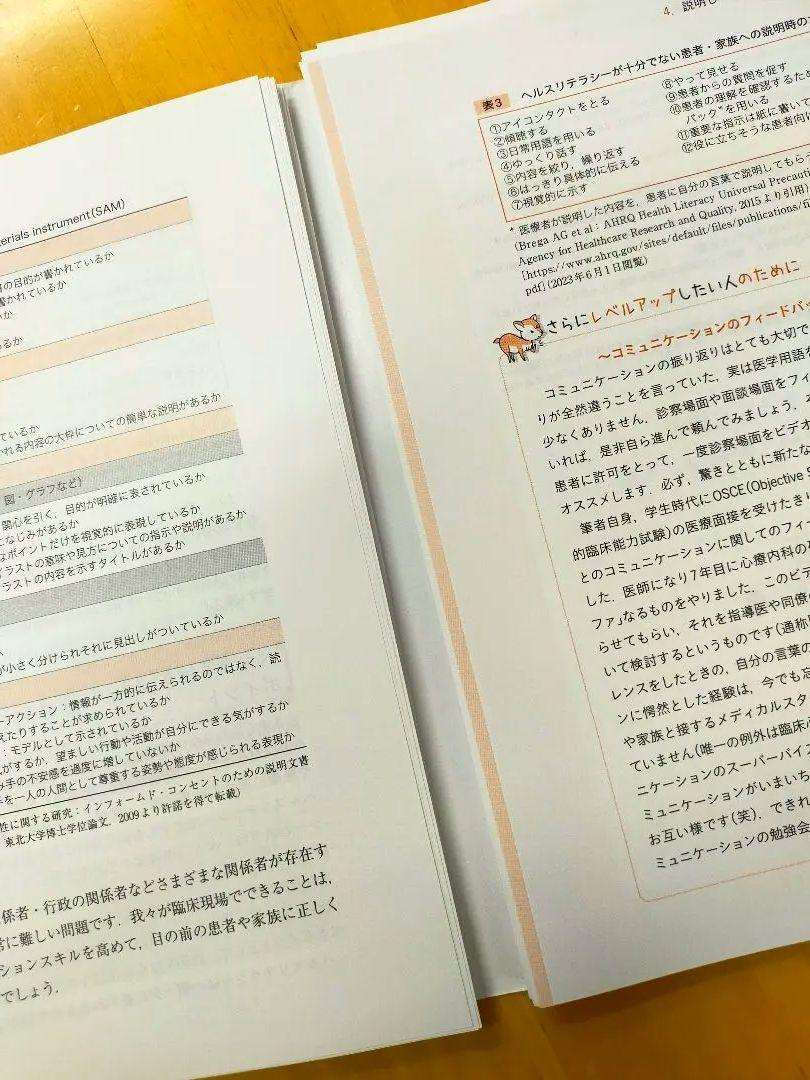 erials instrument(SAM)
の目的が書かれているか
書かれているか
か
るか
ているか
かれる内容の大枠についての簡単な説明があるか
図・グラフなど)
関心を引く，目的が明確に表されているか
なじみがあるか
なポイントだけを視覚的に表現しているか
イラストの意味や見方についての指示や説明があるか
ラストの内容を示すタイトルがあるか
が小さく分けられそれに見出しがついているか
ーアクション：情報が一方的に伝えられるのではなく，読
えたりすることが求められているか
：モデルとして示されているか
がするか，望ましい行動や活動が自分にできる気がするか
み手の不安感を過度に増していないか
手を一人の人間として尊重する姿勢や態度が感じられる表現か
性に関する研究：インフォームド・コンセントのための説明文書
東北大学博士学位論文，2009より許諾を得て転載)
係者・行政の関係者などさまざまな関係者が存在す
常に難しい問題です．我々が臨床現場でできることは，
ションスキルを高めて，目の前の患者や家族に正しく
でしょう．
4．説明し
表3 ヘルスリテラシーが十分でない患者・家族への説明時の
①アイコンタクトをとる
②傾聴する
③日常用語を用いる
④ゆっくり話す
⑤内容を絞り，繰り返す
⑥はっきり具体的に伝える
⑦視覚的に示す
⑧やって見せる
⑨患者からの質問を促す
⑩患者の理解を確認するため
バック*を用いる
⑪重要な指示は紙に書いて
⑫役に立ちそうな患者向け
* 医療者が説明した内容を，患者に自分の言葉で説明してもらう
(Brega AG et al：AHRQ Health Literacy Universal Precauti
Agency for Healthcare Research and Quality, 2015より引用)
[https://www.ahrq.gov/sites/default/files/publications/fi
pdf](2023年6月1日閲覧)
さらにレベルアップしたい人のために
～コミュニケーションのフィードバッ
コミュニケーションの振り返りはとても大切で
りが全然違うことを言っていた，実は医学用語を
少なくありません．診察場面や面談場面をフィ
いれば，是非自ら進んで頼んでみましょう．
患者に許可をとって，一度診察場面をビデオ
オススメします．必ず，驚きとともに新たな
筆者自身，学生時代にOSCE(Objective s
的臨床能力試験)の医療面接を受けたき
とのコミュニケーションに関してのフィ
した．医師になり7年目に心療内科の
ファ」なるものをやりました．このビデ
らせてもらい，それを指導医や同僚の
いて検討するというものです(通称
レンスをしたときの，自分の言葉の
ンに愕然とした経験は，今でも忘
や家族と接するメディカルスタ
ていません(唯一の例外は臨床心
ニケーションのスーパーバイズ
ミュニケーションがいまいち
お互い様です(笑)．できれ
ミュニケーションの勉強会